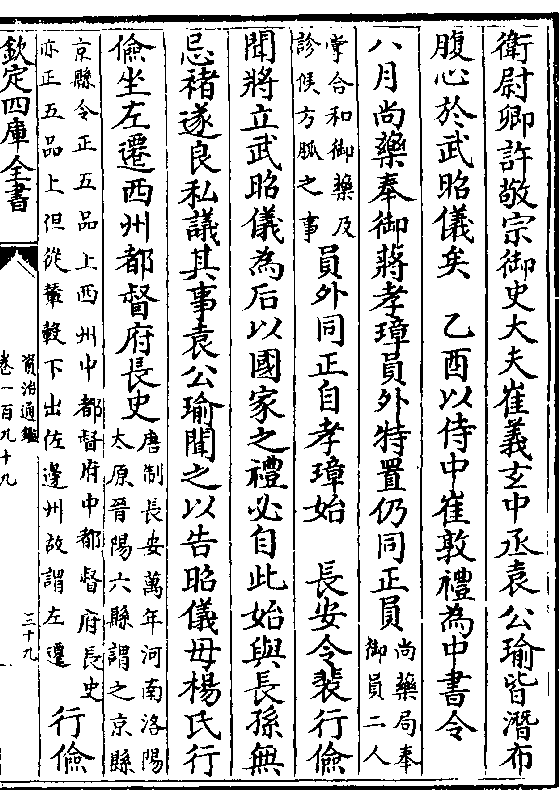 衛尉卿許敬宗御史大夫崔義玄中丞袁公瑜皆潛布
腹心於武昭儀矣　乙酉以侍中崔敦禮為中書令
八月尚藥奉御蔣孝璋員外特置仍同正員
尚藥局奉
御員二人
掌合和御藥及
診候方脈之事
員外同正自孝璋始　長安令裴行儉
聞將立武昭儀為后以國家之禮必自此始與長孫無
忌褚遂良私議其事袁公瑜聞之以告昭儀母楊氏行
儉坐左遷西州都督府長史
唐制長安萬年河南洛陽
太原晉陽六縣謂之京縣
京縣令正五品上西州中都督府中都督府長史
亦正五品上但從輦轂下出佐邊州故謂左遷
行儉
欽定四庫全書
資治通鑑
卷一百九十九
三十九